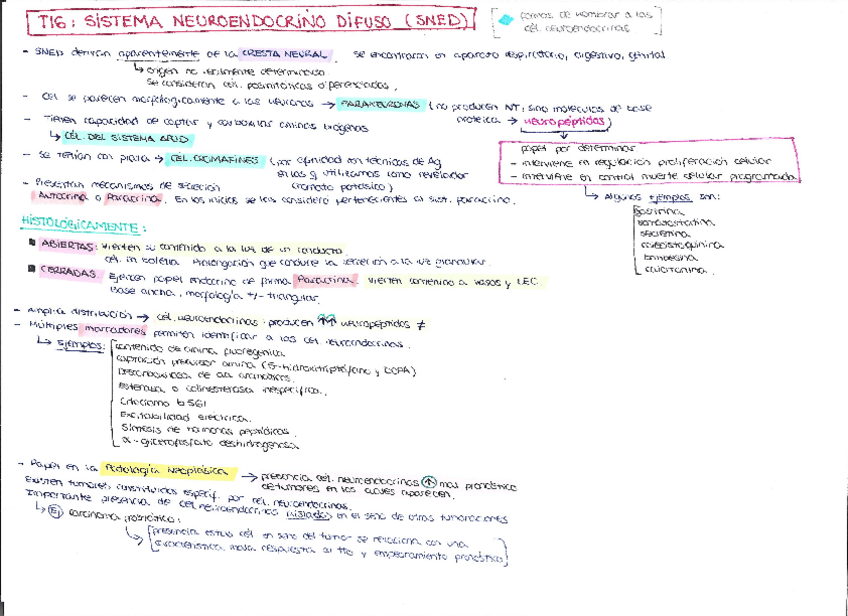 T16: SISTEMA NEUROENDOCRINO DIFUSO (SNED)
formas de nombrar a las
cél. neuroendocrinas.
- SNED derivan aparentemente de la CRESTA NEURAL. Se encontraron en aparato respiratorio, digestivo, genital
origen no realmente determinado
Se consideran cél. posmitóticas o perennadas.
- Cél se parecen morfológicamente a las neuronas → PARANEURONAS (no producen NT, sino moléculas de base
proteica → neuropéptidos)
- Tienen capacidad de captar y carboxilar aminas biógenas
CÉL. DEL SISTEMA APUD
papel por determinar
- interviene en regulación proliferación celular
- interviene en control muerte celular programada
- Se teñían con plata → CÉL. CROMAFINES (por afinidad en técnicas de Ag
en las q utilizamos como revelador
cromato potásico)
- Presentan mecanismos de secreción
Autocrina o Paracrina. En los inicios se las consideró pertenecientes al sist. paracrino.
Algunos ejemplos son:
gastrina
somatostatina
secretina
colecistoquinina
bombesina
calcitonina.
HISTOLÓGICAMENTE:
ABIERTAS: vierten su contenido a la luz de un conducto.
cél. en botella. Prolongación que conduce la secreción a la luz glandular.
CERRADAS. Ejercen papel endocrino de forma Paracrina. Vierten contenido a vasos y LEC.
Base ancha, morfología +/- triangular.
- Amplia distribución → cél. neuroendocrinas producen ↑↑ neuropéptidos ≠
- Múltiples marcadores permiten identificar a las cél. neuroendocrinas.
Ejemplos: contenido de amina fluorogénica
captación precursor amina (5-hidroxitriptófano y DOPA)
Descarboxilasa de aa aromáticos.
esterasa o colinesterasa inespecífica.
Citocromo b561
Excitabilidad eléctrica.
Síntesis de hormonas peptídicas.
α-glicerofosfato deshidrogenasa
- Papel en la Patología Neoplásica → presencia cél. neuroendocrinas ↑ mal pronóstico
de tumores en los cuales aparecen.
Existen tumores constituidos específ. por cél. neuroendocrinas.
Importante presencia de cél neuroendocrinas aisladas en el seno de otras tumoraciones
Ej carcinoma prostático:
presencia estas cél en seno del tumor se relaciona con una
característica mala respuesta su tto y empeoramiento pronóstico